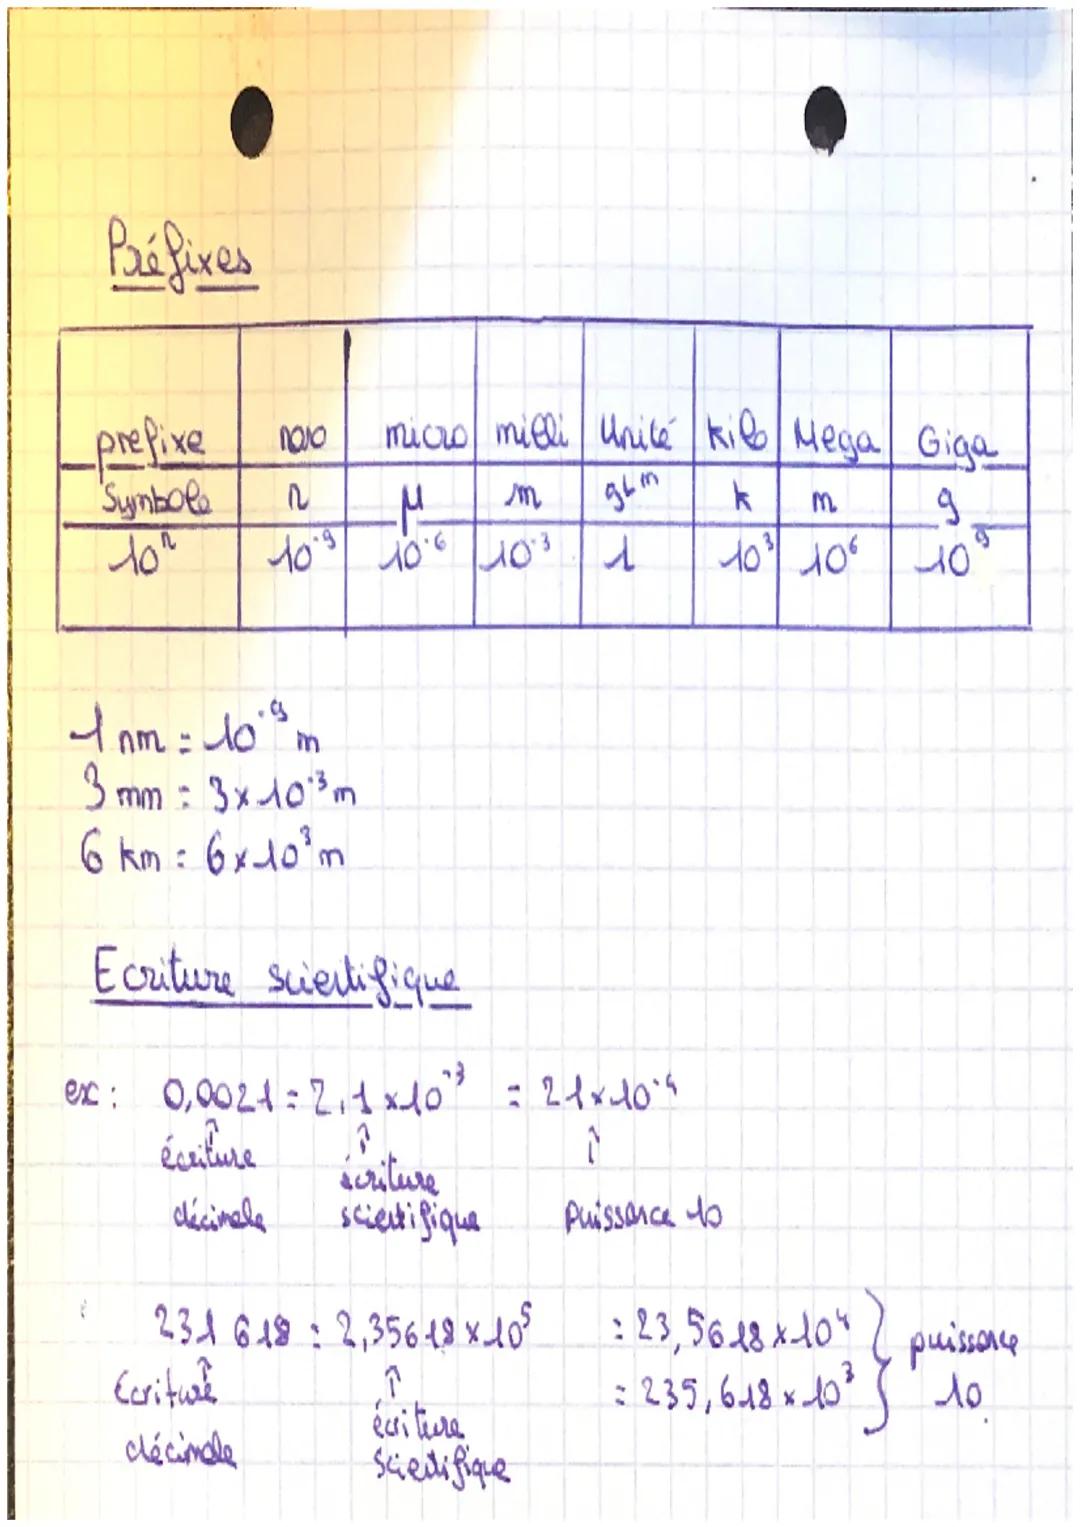 Préfixes
prefixe nano micro milli Unité kilo Mega Giga
Symbole n µ m g L m k m g
10ⁿ 10⁻⁹ 10⁻⁶ 10⁻³ 1 10³ 10⁶ 10⁹
1 nm = 10⁻⁹ m
3 mm = 3×10⁻³ m
6 km = 6×10³ m
Ecriture scientifique
ex : 0,0021 = 2,1 ×10⁻³ = 21×10⁻⁴
↑ ↑ ↑
écriture écriture
décimale scientifique puissance 10
231 618 = 2,35618 ×10⁵ = 23,5618×10⁴ } puissance
= 235,618 × 10³ } 10
Ecriture ↑ ↑
décimale écriture
scientifique